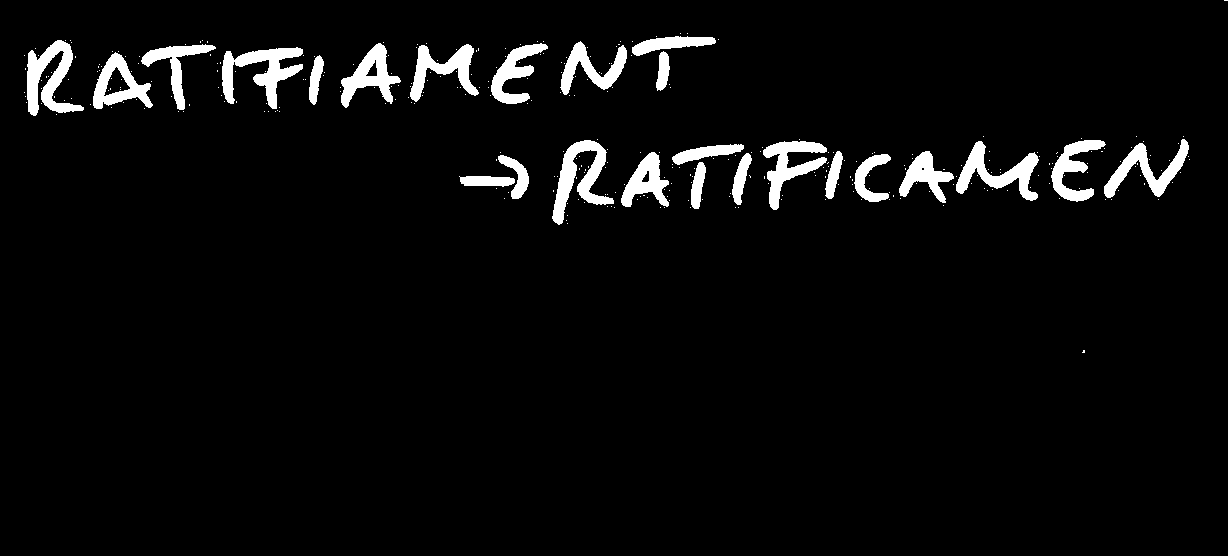 RATIFIAMENT
→ RATIFICAMEN